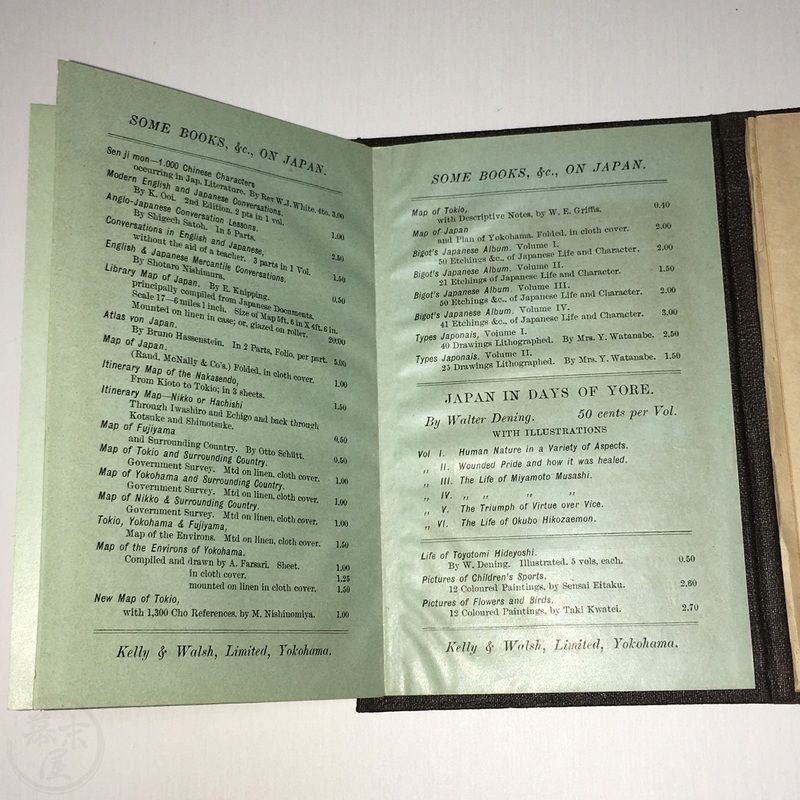 SOME BOOKS, &c., ON JAPAN.
Sen ji mon—1.000 Chinese Characters
occurring in Jap. Literature. By Rev W.J. White, 4to. 3.00
Modern English and Japanese Conversations.
By K. Ooi. 2nd Edition, 2 pts in 1 vol. 1.00
Anglo-Japanese Conversation Lessons.
By Shigech Satoh. In 5 Parts. 2.50
Conversations in English and Japanese,
without the aid of a teacher. 3 parts in 1 Vol. 1.50
English & Japanese Mercantile Conversations.
By Shotaro Nishimura. 0.50
Library Map of Japan. By E. Knipping.
principally compiled from Japanese Documents.
Scale 17—6 miles 1 inch. Size of Map 5ft. 6 in X 4ft. 6 in.
Mounted on linen in case; or, glazed on roller. 20.00
Atlas von Japan.
By Bruno Hassenstein. In 2 Parts, Folio, per part. 5.00
Map of Japan.
(Rand, McNally & Co's.) Folded, in cloth cover. 1.00
Itinerary Map of the Nakasendo,
From Kioto to Tokio; in 3 sheets. 1.50
Itinerary Map—Nikko or Hachishi
Through Iwashiro and Echigo and back through
Kotsuke and Shimotsuke. 0.50
Map of Fujiyama
and Surrounding Country. By Otto Schütt. 0.50
Map of Tokio and Surrounding Country.
Government Survey. Mtd on linen, cloth cover. 1.00
Map of Yokohama and Surrounding Country.
Government Survey. Mtd on linen, cloth cover. 1.00
Map of Nikko & Surrounding Country.
Government Survey. Mtd on linen, cloth cover. 1.00
Tokio, Yokohama & Fujiyama,
Map of the Environs. Mtd on linen, cloth cover. 1.50
Map of the Environs of Yokohama.
Compiled and drawn by A. Farsari. Sheet. 1.00
in cloth cover. 1.25
mounted on linen in cloth cover. 1.50
New Map of Tokio,
with 1,300 Cho References, by M. Nishinomiya. 1.00
Kelly & Walsh, Limited, Yokohama.
SOME BOOKS, &c., ON JAPAN.
Map of Tokio,
with Descriptive Notes, by W. E. Griffis. 0.40
Map of Japan
and Plan of Yokohama. Folded, in cloth cover. 2.00
Bigot's Japanese Album. Volume I.
50 Etchings &c., of Japanese Life and Character. 2.00
Bigot's Japanese Album. Volume II.
21 Etchings of Japanese Life and Character. 1.50
Bigot's Japanese Album. Volume III.
50 Etchings &c., of Japanese Life and Character. 2.00
Bigot's Japanese Album. Volume IV.
41 Etchings &c., of Japanese Life and Character. 3.00
Types Japonais, Voiume I.
40 Drawings Lithographed. By Mrs. Y. Watanabe. 2.50
Types Japonais. Volume II.
25 Drawings Lithographed. By Mrs. Y. Watanabe. 1.50
JAPAN IN DAYS OF YORE.
By Walter Dening. 50 cents per Vol.
WITH ILLUSTRATIONS
Vol I. Human Nature in a Variety of Aspects.
,, II. Wounded Pride and how it was healed.
,, III. The Life of Miyamoto Musashi.
,, IV. ,, ,, ,, ,,
,, V. The Triumph of Virtue over Vice.
,, VI. The Life of Okubo Hikozaemon.
Life of Toyotomi Hideyoshi.
By W. Dening. Illustrated. 5 vols, each. 0.50
Pictures of Children's Sports.
12 Coloured Paintings, by Sensai Eitaku. 2.60
Pictures of Flowers and Birds,
12 Coloured Paintings, by Taki Kwatei. 2.70
Kelly & Walsh, Limited, Yokohama.
幕末屋